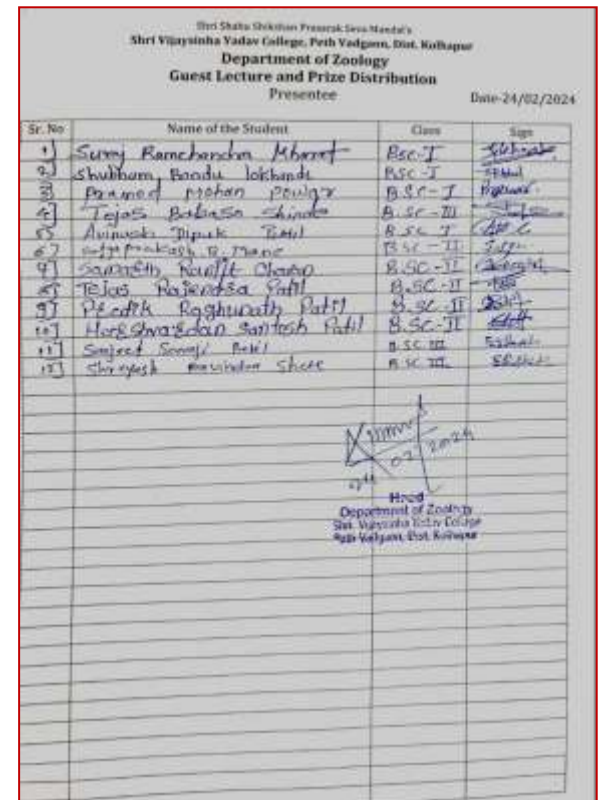 Shri Shahu Shikshan Prasarak Seva Mandal's
Shri Vijaysinha Yadav College, Peth Vadgaon, Dist. Kolhapur
Department of Zoology
Guest Lecture and Prize Distribution
Presentee
Date-24/02/2024
Sr. No Name of the Student Class Sign
1] Suraj Ramchandra Bsc-I
2] Shubham Bandu lokhande BSC-I
3] Pramod Mohan Powar B.SC-I
4] Tejas Babaso Shinde B.SC-III
5] Avinash Dipak Patil B.SC I
6] R. Mane BSC-II
7] Samarth Ranjit B.SC-II
8] Tejas Rajendra Patil B.SC-II
9] Raghunath Patil B.SC-II
10] Harshvardan Santosh Patil B.SC-II
11] Patil B.SC III
12] Shreyash Shete B.SC III
02 2024
Head
Department of Zoology
Shri. Vijaysinha Yadav College
Peth Vadgaon, Dist. Kolhapur